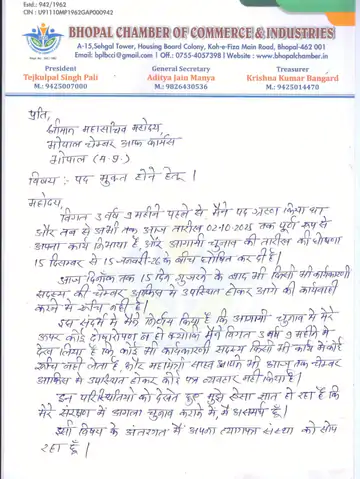 Estd.: 942/1962
CIN : U91110MP1962GAP000942
BHOPAL CHAMBER OF COMMERCE & INDUSTRIES
A-15,Sehgal Tower, Housing Board Colony, Koh-e-Fiza Main Road, Bhopal-462 001
Email: bplbcci@gmail.com | Off.: 0755-4057398 | Website : www.bhopalchamber.in
President
Tejkulpal Singh Pali
M.: 9425007000
General Secretary
Aditya Jain Manya
M.: 9826430536
Treasurer
Krishna Kumar Bangard
M.: 9425014470
प्रति,
श्रीमान महासचिव महोदय,
भोपाल चेम्बर आफ कामर्स
भोपाल (म.प्र.)
विषय :- पद मुक्त होने हेतु।
महोदय,
विगत 3 वर्ष 9 महीने पहले से मैंने पद ग्रहण किया था
और तब से अभी तक आज तारीख 02-10-2025 तक पूर्ण रूप से
अपना कार्य निभाया है, और आगामी चुनाव की तारीख की घोषणा
15 दिसम्बर से 15 जनवरी-26 के बीच घोषित कर दी है।
आज दिनांक तक 15 दिन गुजरने के बाद भी किसी भी कार्यकारणी
सदस्य की चेम्बर आफिस में उपस्थित होकर आगे की कार्यवाही
करने में रूचि नहीं है।
इस संदर्भ में मैंने निर्णय किया है कि आगामी चुनाव में मेरे
ऊपर कोई दोषारोपण न हो क्योंकि मैंने विगत 3 वर्ष 9 महीने में
देख लिया है कि कोई भी कार्यकारणी सदस्य किसी भी कार्य में कोई
रूचि नहीं लेता है, और महामंत्री आपने भी आज तक चेम्बर
आफिस में उपस्थित होकर कोई पत्र व्यवहार नहीं किया है।
इन परिस्थितियों को देखते हुए मुझे ऐसा ज्ञात हो रहा है कि
मेरे संरक्षण में अगला चुनाव कराने में, मैं असमर्थ हूँ।
इसी विषय के अंतरगत मैं अपना त्यागपत्र संस्था को सौंप
रहा हूँ।